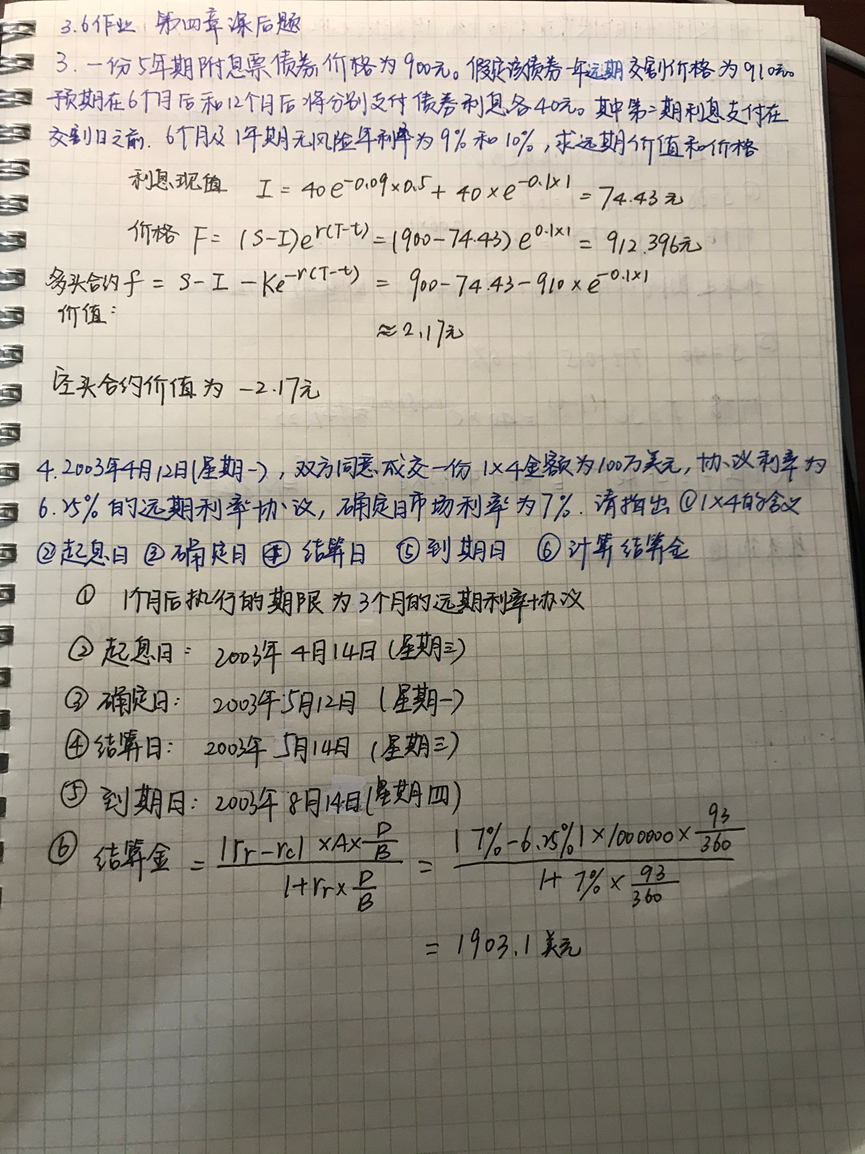 3.6作业 第四章课后题
3. 一份5年期附息票债券,价格为900元。假定该债券一年远期交割价格为910元。
预期在6个月后和12个月后将分别支付债券利息各40元。其中第二期利息支付在
交割日之前. 6个月及1年期无风险年利率为9%和10%,求远期价值和价格
利息现值 I = 40e^{-0.09×0.5} + 40×e^{-0.1×1} = 74.43元
价格 F = (S-I)e^{r(T-t)} = (900-74.43)e^{0.1×1} = 912.396元
多头合约 f = S-I-Ke^{-r(T-t)} = 900-74.43-910×e^{-0.1×1}
价值:
≈2.17元
空头合约价值为 -2.17元
4. 2003年4月12日(星期一),双方同意成交一份1×4金额为100万美元,协议利率为
6.25%的远期利率协议,确定日市场利率为7%. 请指出①1×4的含义
②起息日 ③确定日 ④结算日 ⑤到期日 ⑥计算结算金
① 1个月后执行的期限为3个月的远期利率协议
②起息日: 2003年4月14日(星期三)
③确定日: 2003年5月12日(星期一)
④结算日: 2003年5月14日(星期三)
⑤到期日: 2003年8月14日(星期四)
⑥ 结算金 = \frac{|r_r-r_c|×A×\frac{D}{B}}{1+r_r×\frac{D}{B}} = \frac{|7%-6.25%|×1000000×\frac{93}{360}}{1+7%×\frac{93}{360}}
= 1903.1美元